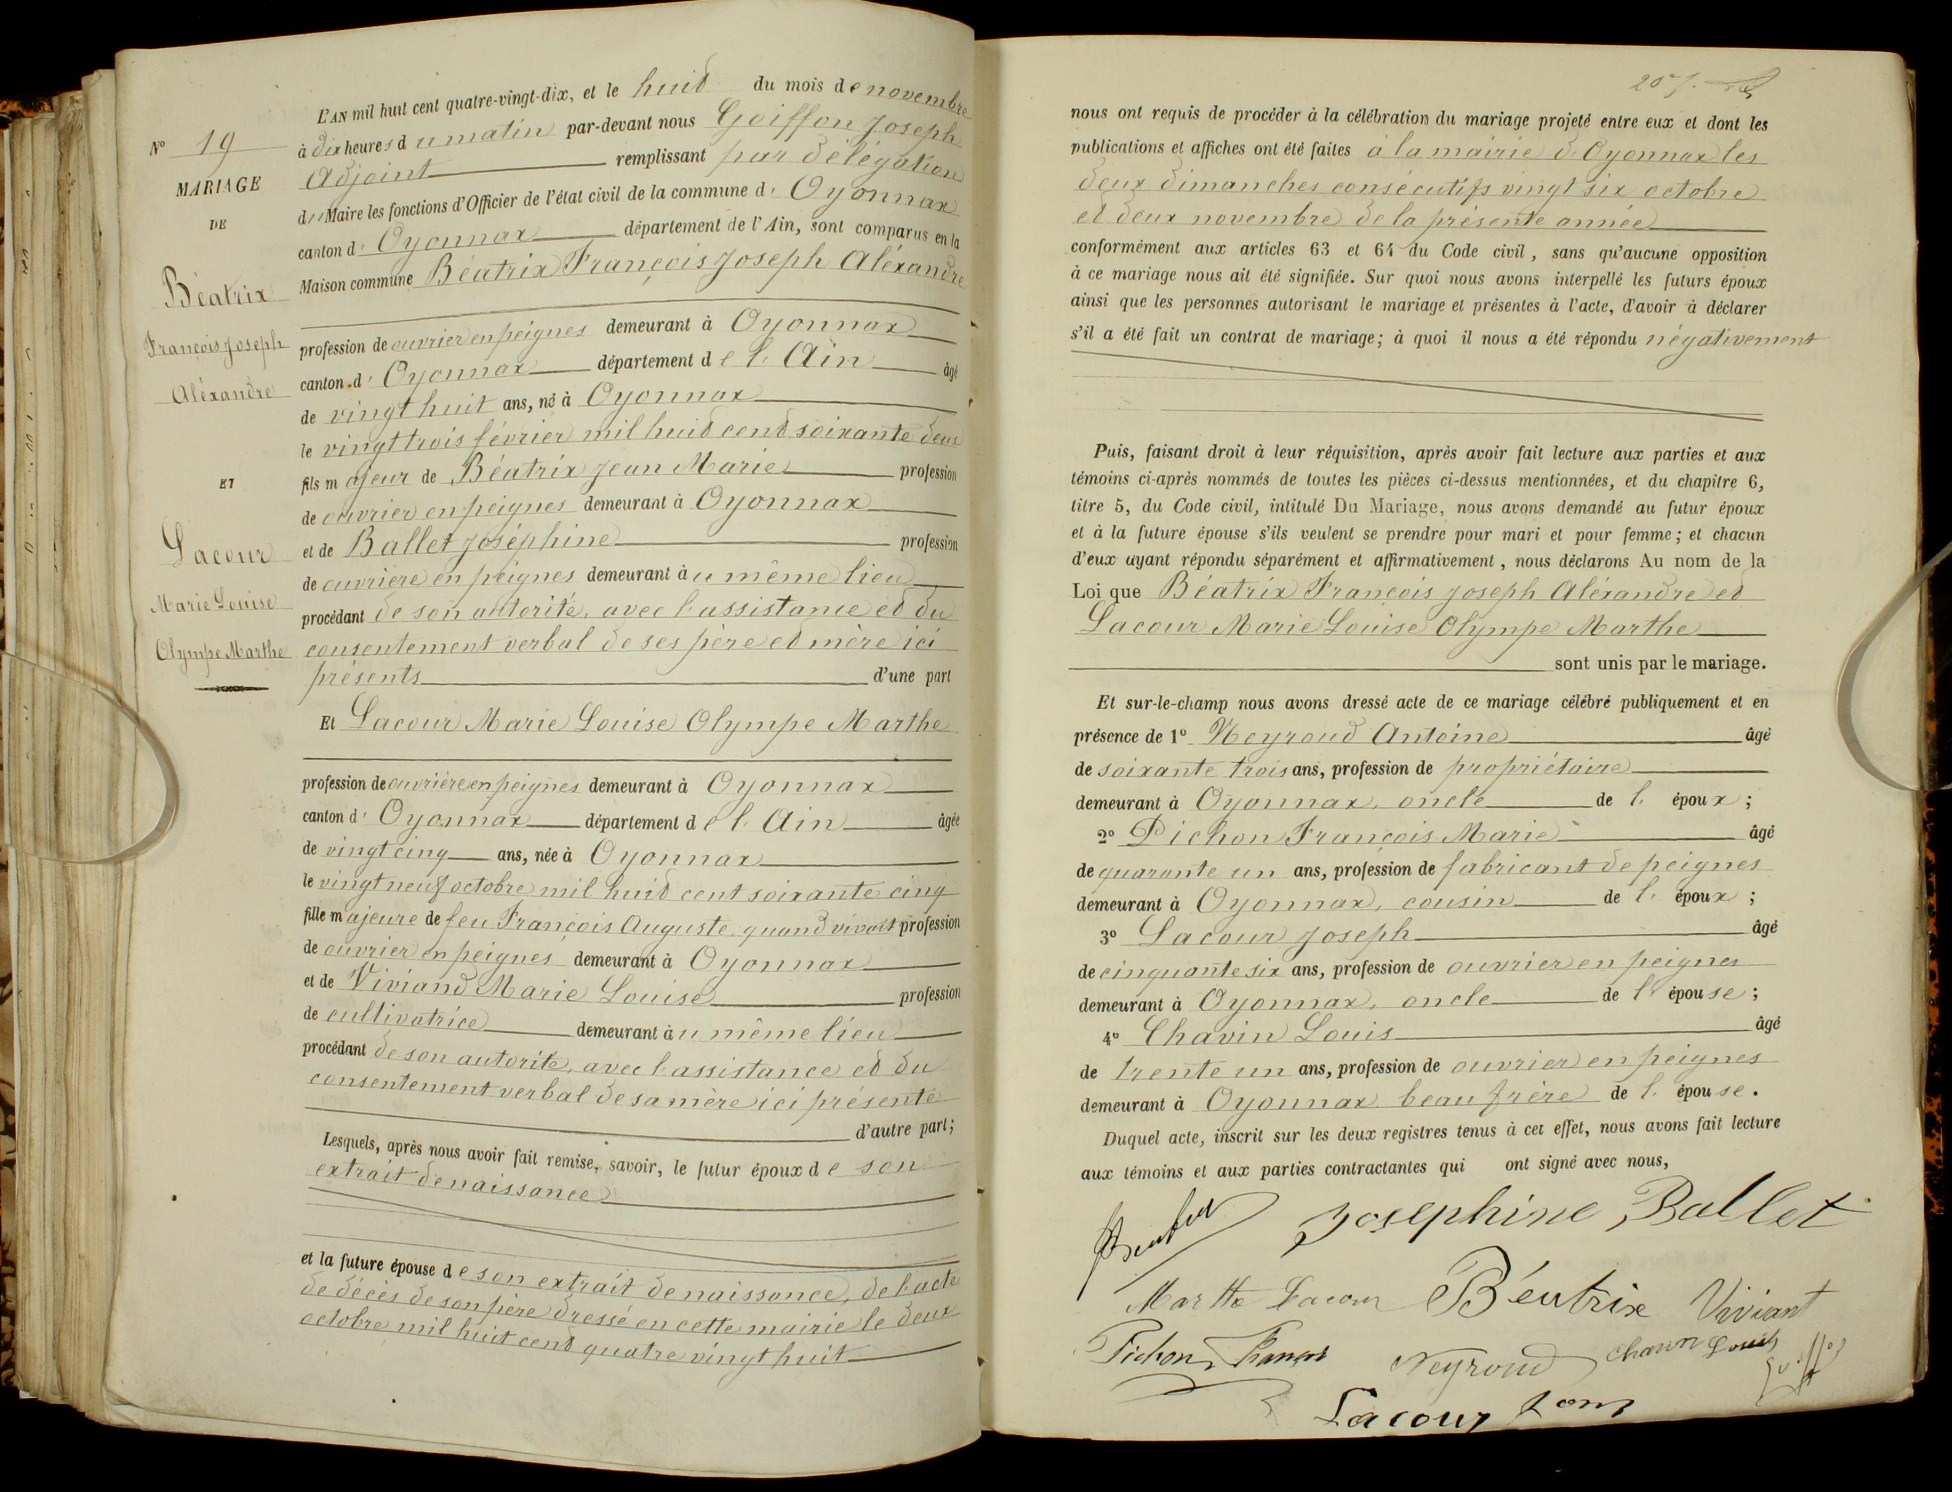 Nº 19
MARIAGE
DE
Béatrix
François Joseph
Aléxandre
ET
Lacour
Marie Louise
Olympe Marthe
L'AN mil huit cent quatre-vingt-dix, et le huit du mois de novembre
à dix heures du matin par-devant nous Goiffon Joseph
Adjoint remplissant par délégation
du Maire les fonctions d'Officier de l'état civil de la commune d' Oyonnax
canton d' Oyonnax département de l'Ain, sont comparus en la
Maison commune Béatrix François Joseph Aléxandre
profession de ouvrier en peignes demeurant à Oyonnax
canton d' Oyonnax département de l'Ain âgé
de vingt huit ans, né à Oyonnax
le vingt trois février mil huit cent soixante deux
fils majeur de Béatrix Jean Marie profession
de ouvrier en peignes demeurant à Oyonnax
et de Ballet Joséphine profession
de ouvrière en peignes demeurant au même lieu
procédant de son autorité, avec l'assistance et du
consentement verbal de ses père et mère ici
présents d'une part
Et Lacour Marie Louise Olympe Marthe
profession de ouvrière en peignes demeurant à Oyonnax
canton d' Oyonnax département de l'Ain âgée
de vingt cinq ans, née à Oyonnax
le vingt neuf octobre mil huit cent soixante cinq
fille majeure de feu François Auguste quand vivait profession
de ouvrier en peignes demeurant à Oyonnax
et de Viviand Marie Louise profession
de cultivatrice demeurant au même lieu
procédant de son autorité, avec l'assistance et du
consentement verbal de sa mère ici présente
d'autre part;
Lesquels, après nous avoir fait remise, savoir, le futur époux de son
extrait de naissance
et la future épouse de son extrait de naissance, de l'acte
de décès de son père dressé en cette mairie le deux
octobre mil huit cent quatre vingt huit
207.
nous ont requis de procéder à la célébration du mariage projeté entre eux et dont les
publications et affiches ont été faites à la mairie d'Oyonnax les
deux dimanches consécutifs vingt six octobre
et deux novembre de la présente année
conformément aux articles 63 et 64 du Code civil, sans qu'aucune opposition
à ce mariage nous ait été signifiée. Sur quoi nous avons interpellé les futurs époux
ainsi que les personnes autorisant le mariage et présentes à l'acte, d'avoir à déclarer
s'il a été fait un contrat de mariage; à quoi il nous a été répondu négativement
Puis, faisant droit à leur réquisition, après avoir fait lecture aux parties et aux
témoins ci-après nommés de toutes les pièces ci-dessus mentionnées, et du chapitre 6,
titre 5, du Code civil, intitulé Du Mariage, nous avons demandé au futur époux
et à la future épouse s'ils veulent se prendre pour mari et pour femme; et chacun
d'eux ayant répondu séparément et affirmativement, nous déclarons Au nom de la
Loi que Béatrix François Joseph Aléxandre et
Lacour Marie Louise Olympe Marthe
sont unis par le mariage.
Et sur-le-champ nous avons dressé acte de ce mariage célébré publiquement et en
présence de 1º Neyroud Antoine âgé
de soixante trois ans, profession de propriétaire
demeurant à Oyonnax, oncle de l' époux;
2º Pichon François Marie âgé
de quarante un ans, profession de fabricant de peignes
demeurant à Oyonnax, cousin de l' époux;
3º Lacour Joseph âgé
de cinquante six ans, profession de ouvrier en peignes
demeurant à Oyonnax, oncle de l' épouse;
4º Chavin Louis âgé
de trente un ans, profession de ouvrier en peignes
demeurant à Oyonnax beau frère de l' épouse.
Duquel acte, inscrit sur les deux registres tenus à cet effet, nous avons fait lecture
aux témoins et aux parties contractantes qui ont signé avec nous,
Josephine Ballet
Marthe Lacour Béatrix Viviant
Pichon François Neyroud Chavin Louis Goiffon
Lacour